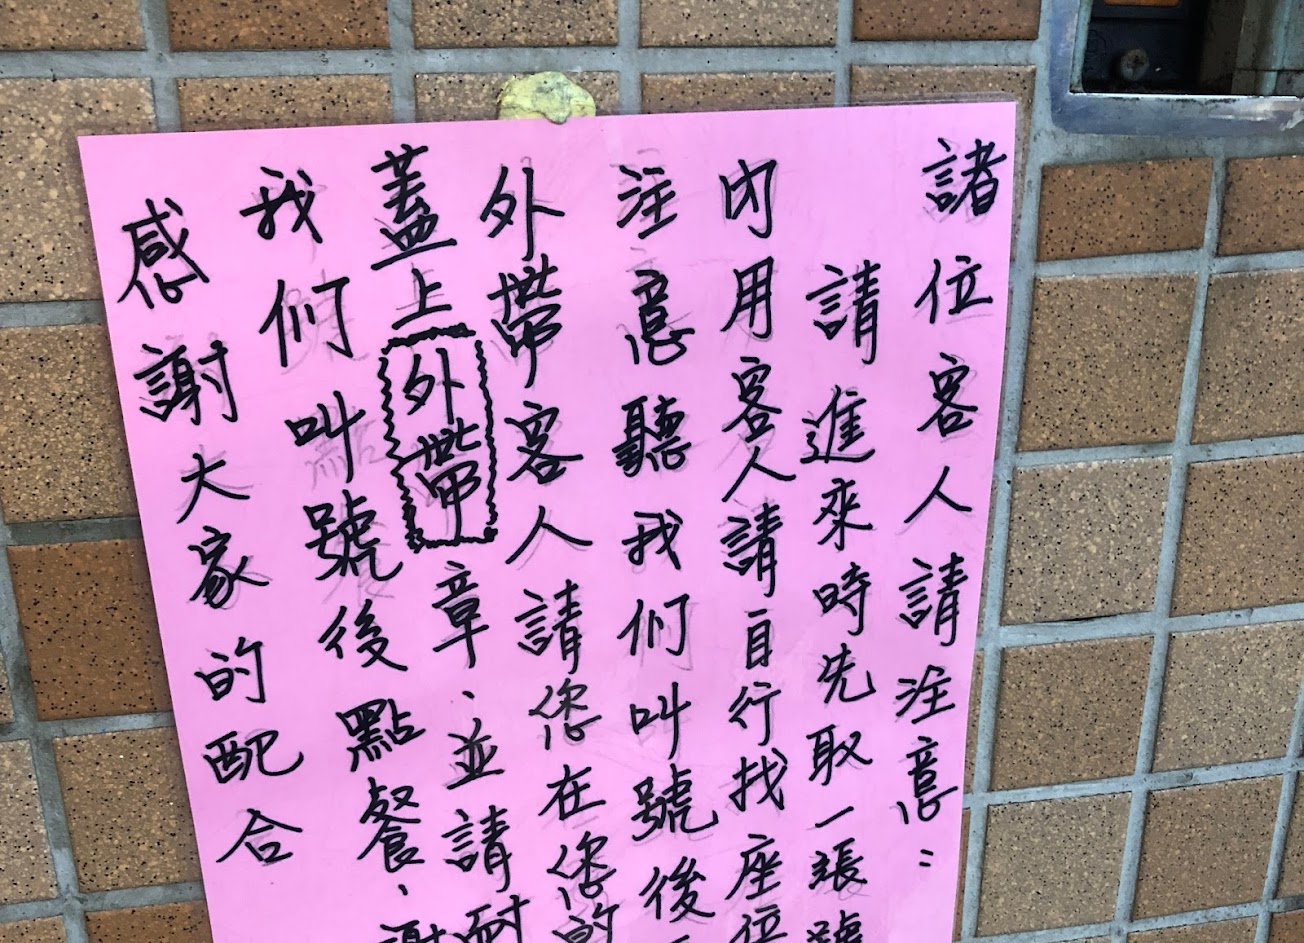 諸位客人請注意：
請進來時先取一張號
內用客人請自行找座位
注意聽我們叫號後
外帶客人請您在您的
蓋上外帶章、並請耐
我們叫號後點餐、謝
感謝大家的配合